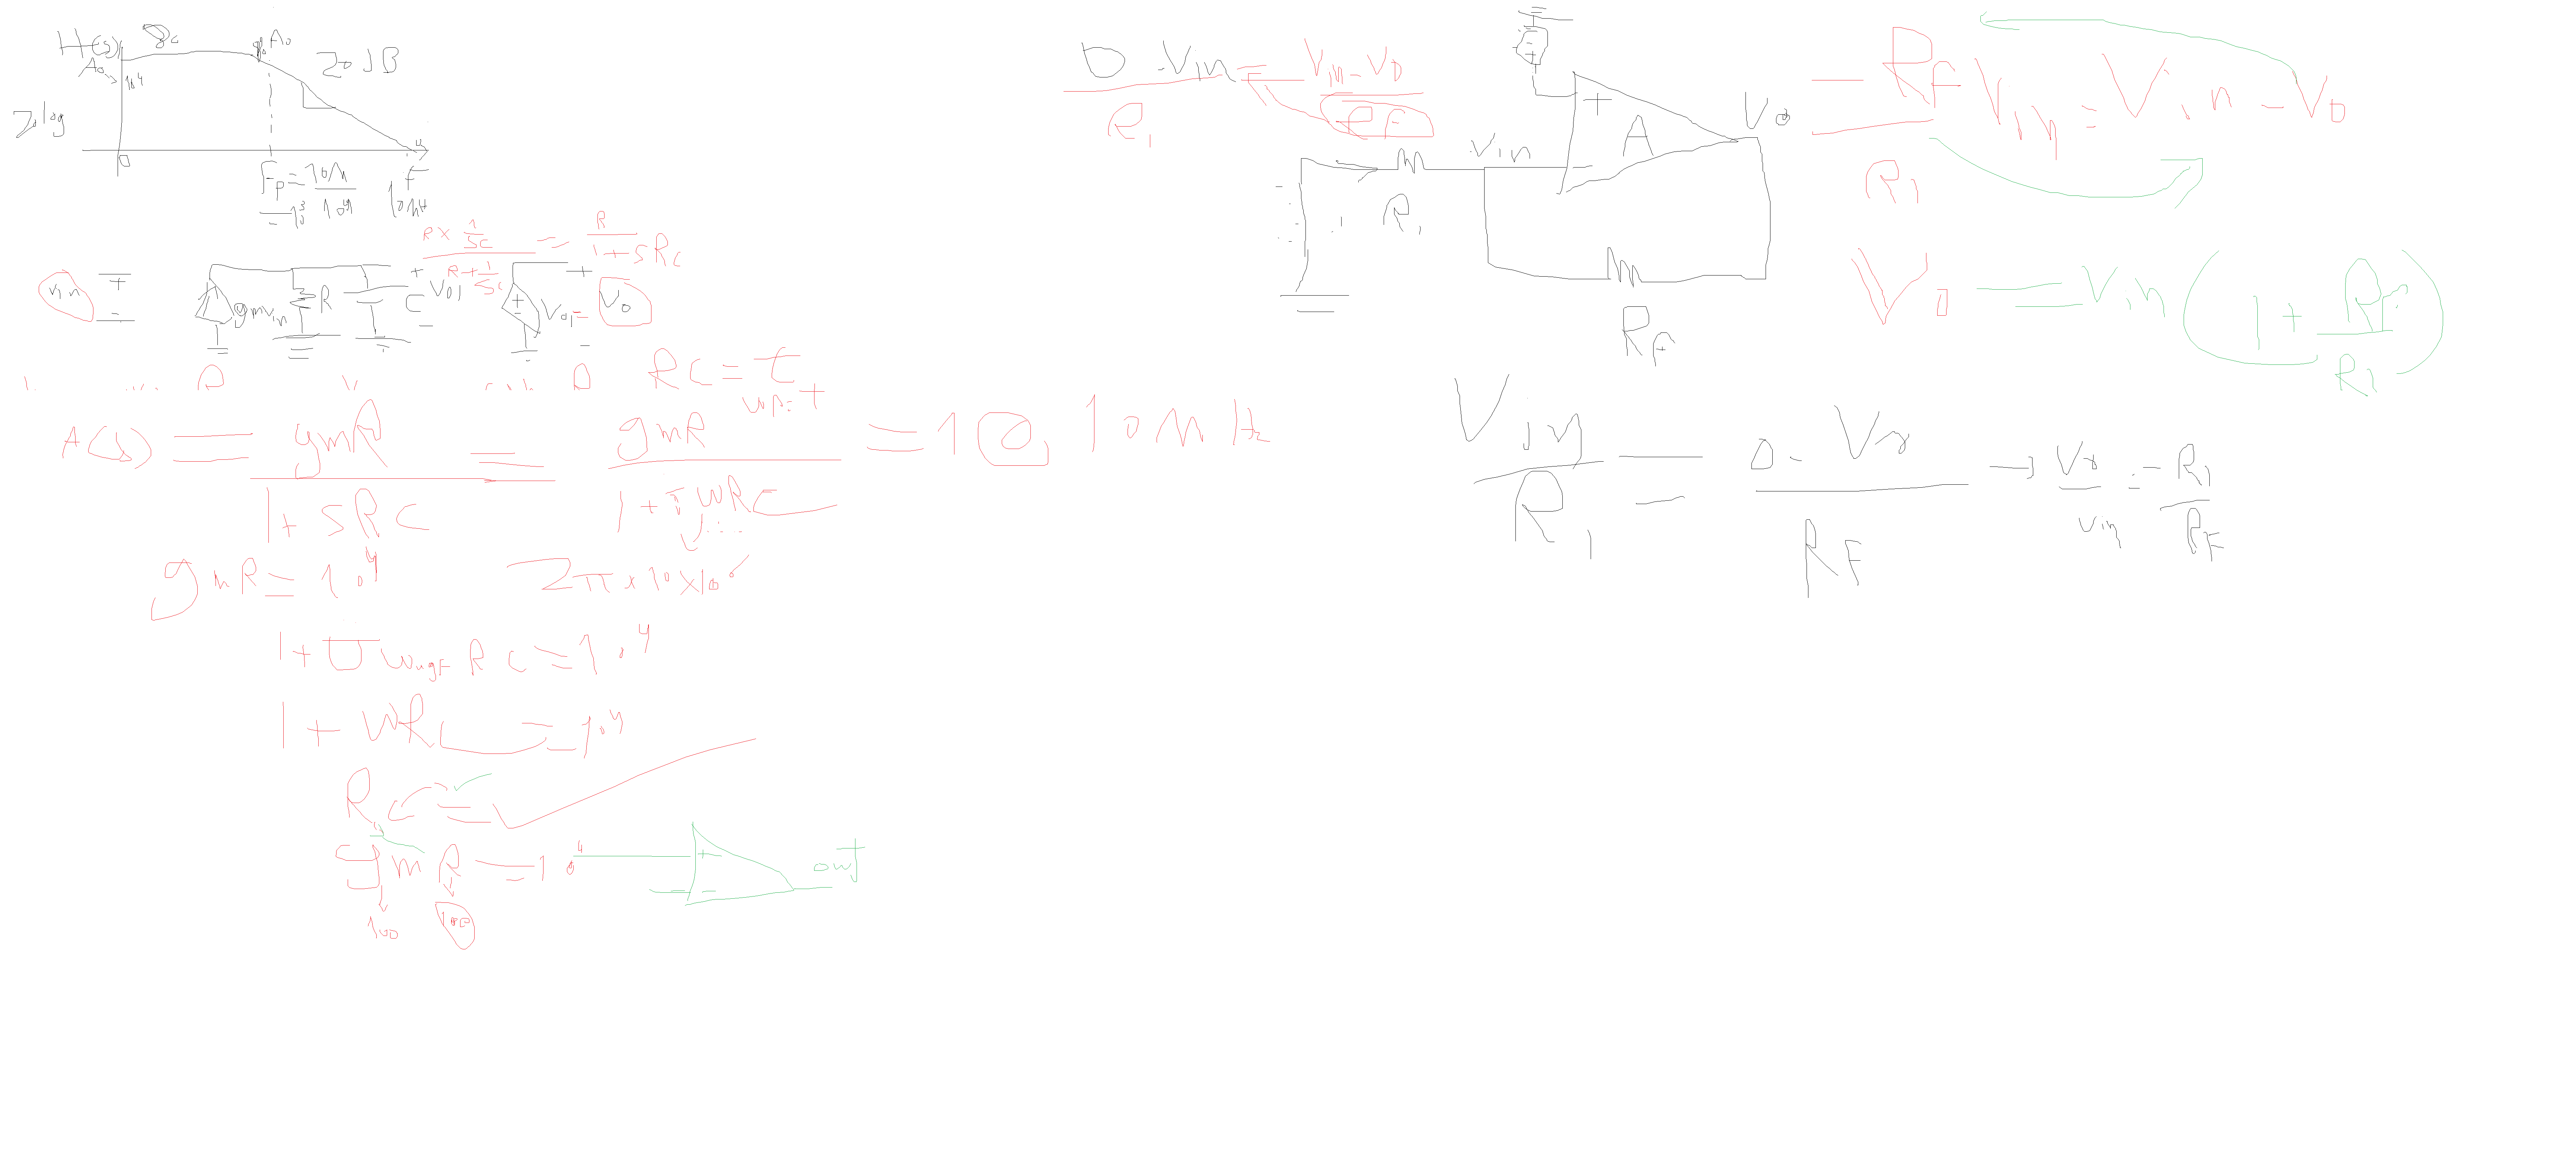 H(s)
A₀
10⁴
20log
A₀
20 dB
0
Fp = 10M / 10⁴
= 10³
F
10MH
R × 1/sC / R + 1/sC = R / 1 + sRC
Vin
+
-
gmVin
R
C
+
V01
-
+
-
V01
+
V0
-
RC = τ
A(s) = gmR / 1 + sRC = gmR / 1 + JWRC = 1 @ 10MHz
gmR = 10⁴
2π × 10 × 10⁶
1 + J Wugf RC = 10⁴
1 + WRC = 10⁴
RC =
gm R = 10⁴
100
100
+
-
out
0 - Vin / R1 = Vin - V0 / RF
+
-
A
V0
Vin
R1
RF
- RF / R1 Vin = Vin - V0
V0 = Vin ( 1 + RF / R1 )
Vin / R1 = 0 - V0 / RF → V0 / Vin = - R1 / RF